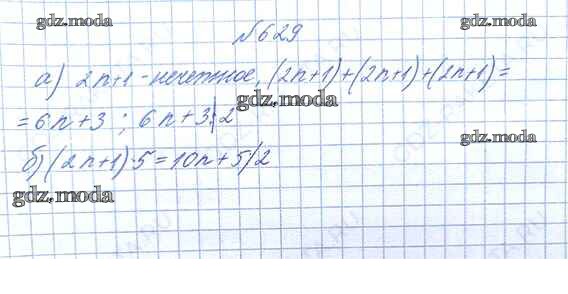 gdz.moda
№629
gdz.moda
а) 2n+1 - нечетное, (2n+1)+(2n+1)+(2n+1)=
gdz.moda
= 6n+3 ; 6n+3⋮2
gdz.moda
б) (2n+1)·5=10n+5/2
gdz.moda